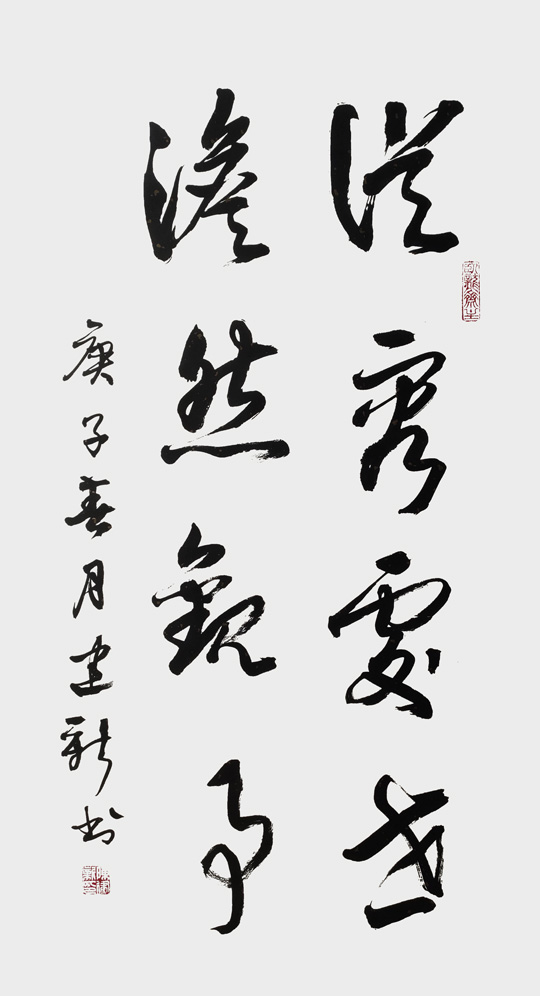 從容處世
澹然觀事
庚子春月建新书